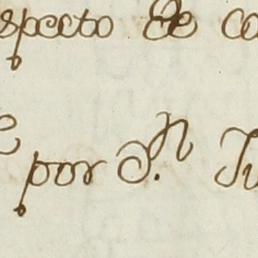 specto de co
por S.n Ju